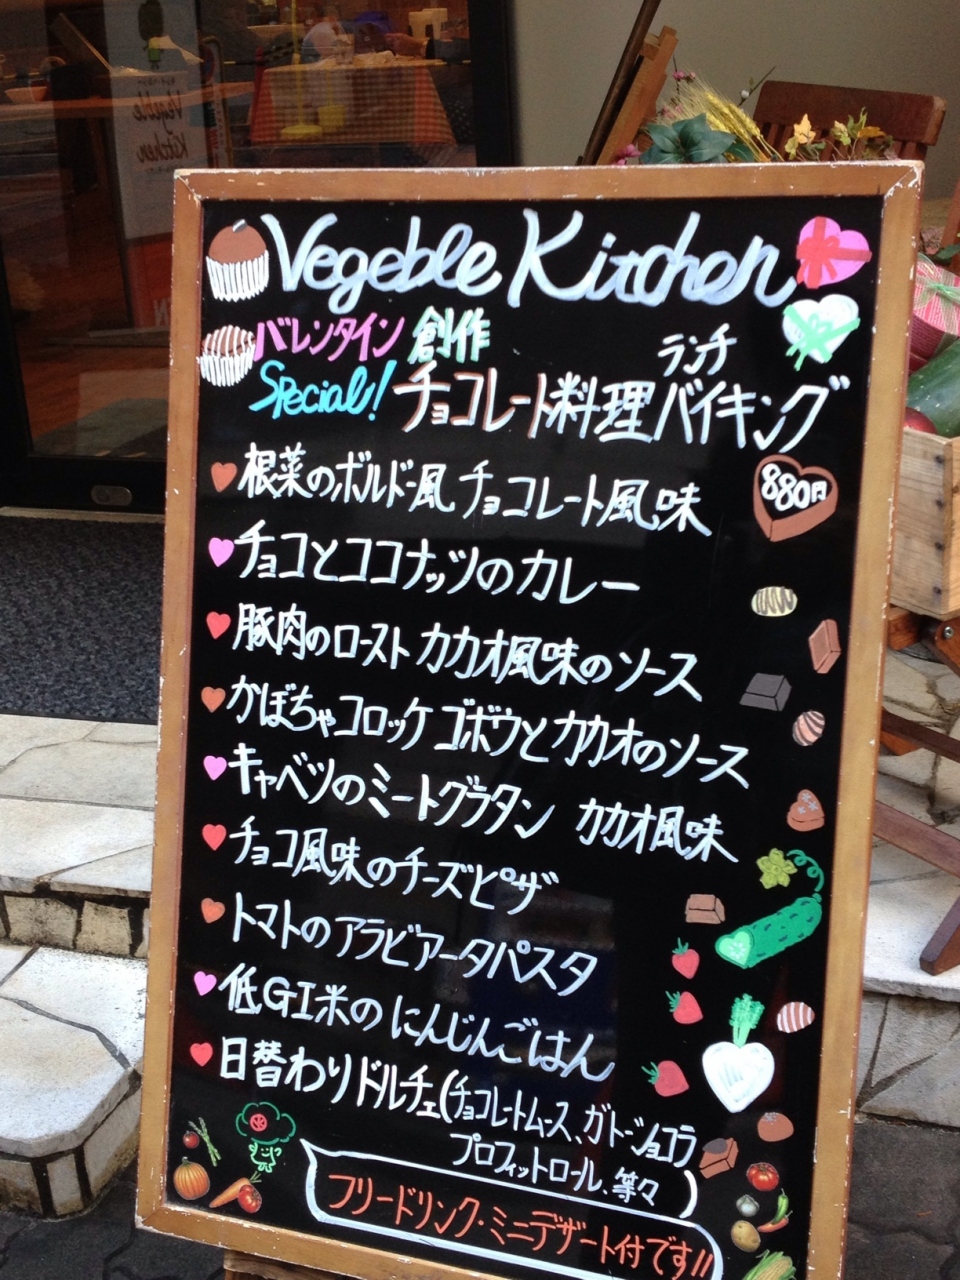 Vegeble Kitchen
バレンタイン 創作
Special! チョコレート料理 ランチバイキング
880円
根菜のボルドー風 チョコレート風味
チョコとココナッツのカレー
豚肉のロースト カカオ風味のソース
かぼちゃコロッケ ゴボウとカカオのソース
キャベツのミートグラタン カカオ風味
チョコ風味のチーズピザ
トマトのアラビアータパスタ
低GI米のにんじんごはん
日替わりドルチェ(チョコレートムース、ガトーショコラ
プロフィットロール、等々)
フリードリンク・ミニデザート付です!!
Vegeble
Kitchen